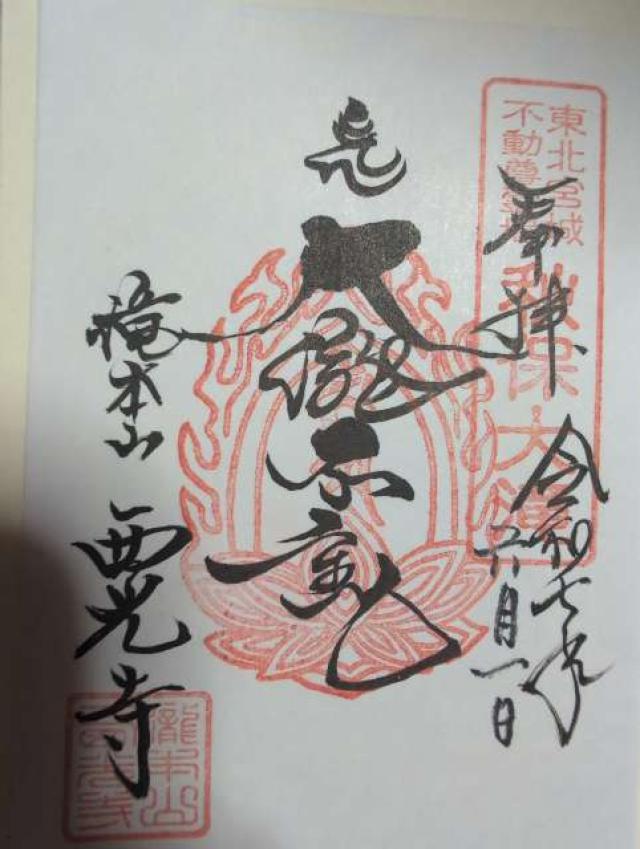 東北宮城
不動尊
秋保大瀧
奉拝
令和七年
六月一日
大瀧不動
滝本山
西光寺
瀧本山